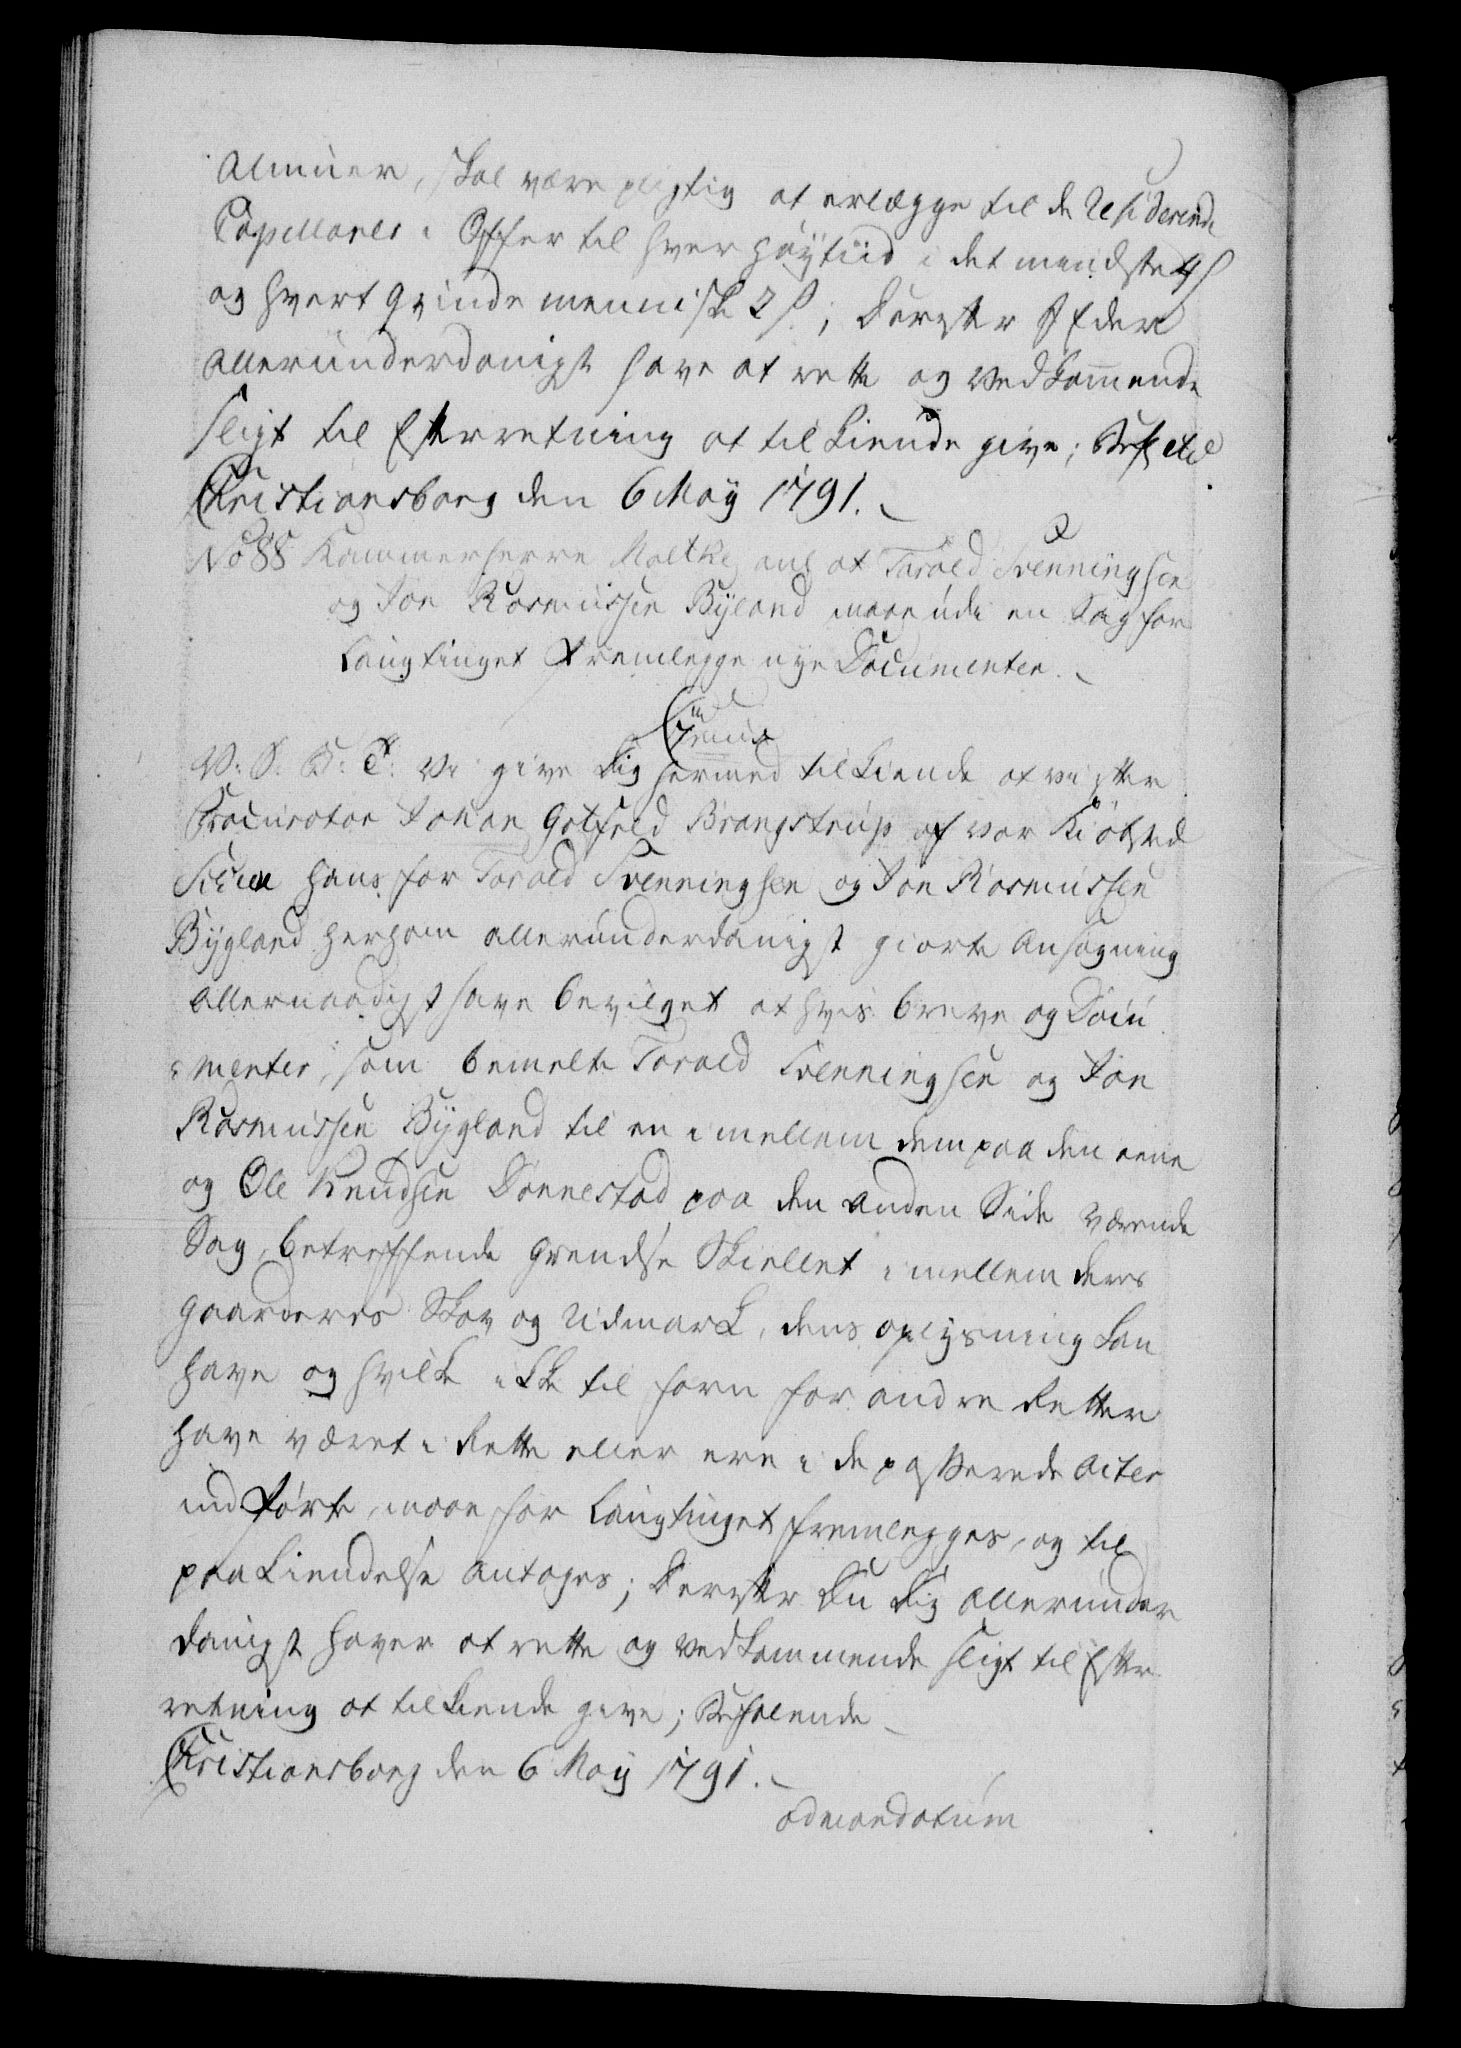 Almuen, skal være pligtig at erlægge til de Residerende
Capellaner i Offer til hver Høytiid i det mindste 4 s
og hvert Qvindemenniske 2 s; Derefter I Eder
allerunderdanigst have at rette og vedkommende
sligt til Efterretning at tilkiende give; Bef. etc.
Christiansborg den 6 May 1791.
No 88 Kammerherre Moltke, anl. at Tarald Svenningsen
og Jon Rasmussen Bygland maae udi en Sag for
Laugtinget fremlegge nye Documenter.
V. S. G. T: Vi give Dig hermed tilkiende at vi efter
Procurator Johan Gotfred Brangstrup af vor Kiøbsted
hans for Tarald Svenningsen og Jon Rasmussen
Bygland herom allerunderdanigst giorte Ansøgning
Allernaadigst have bevilget at hvis breve og Docu
menter, som bemelte Tarald Svenningsen og Jon
Rasmussen Bygland til en imellem dem paa den eene
og Ole Knudsen Dønnestad paa den anden Side værende
Sag, betreffende Grendse Skiellet imellem deres
Gaarderes Skov og Udmark, dens oplysning kan
have og hvilke ikke til forn for andre Retter
have været i Rette eller ere i de passerede Acter
indførte, maae for Laugtinget fremlegges, og til
paakiendelse antages; Derefter Du Dig allerunder
danigst haver at rette og vedkommende sligt til Efter
retning at tilkiende give; Befalende
Christiansborg den 6 May 1791.
ad mandatum